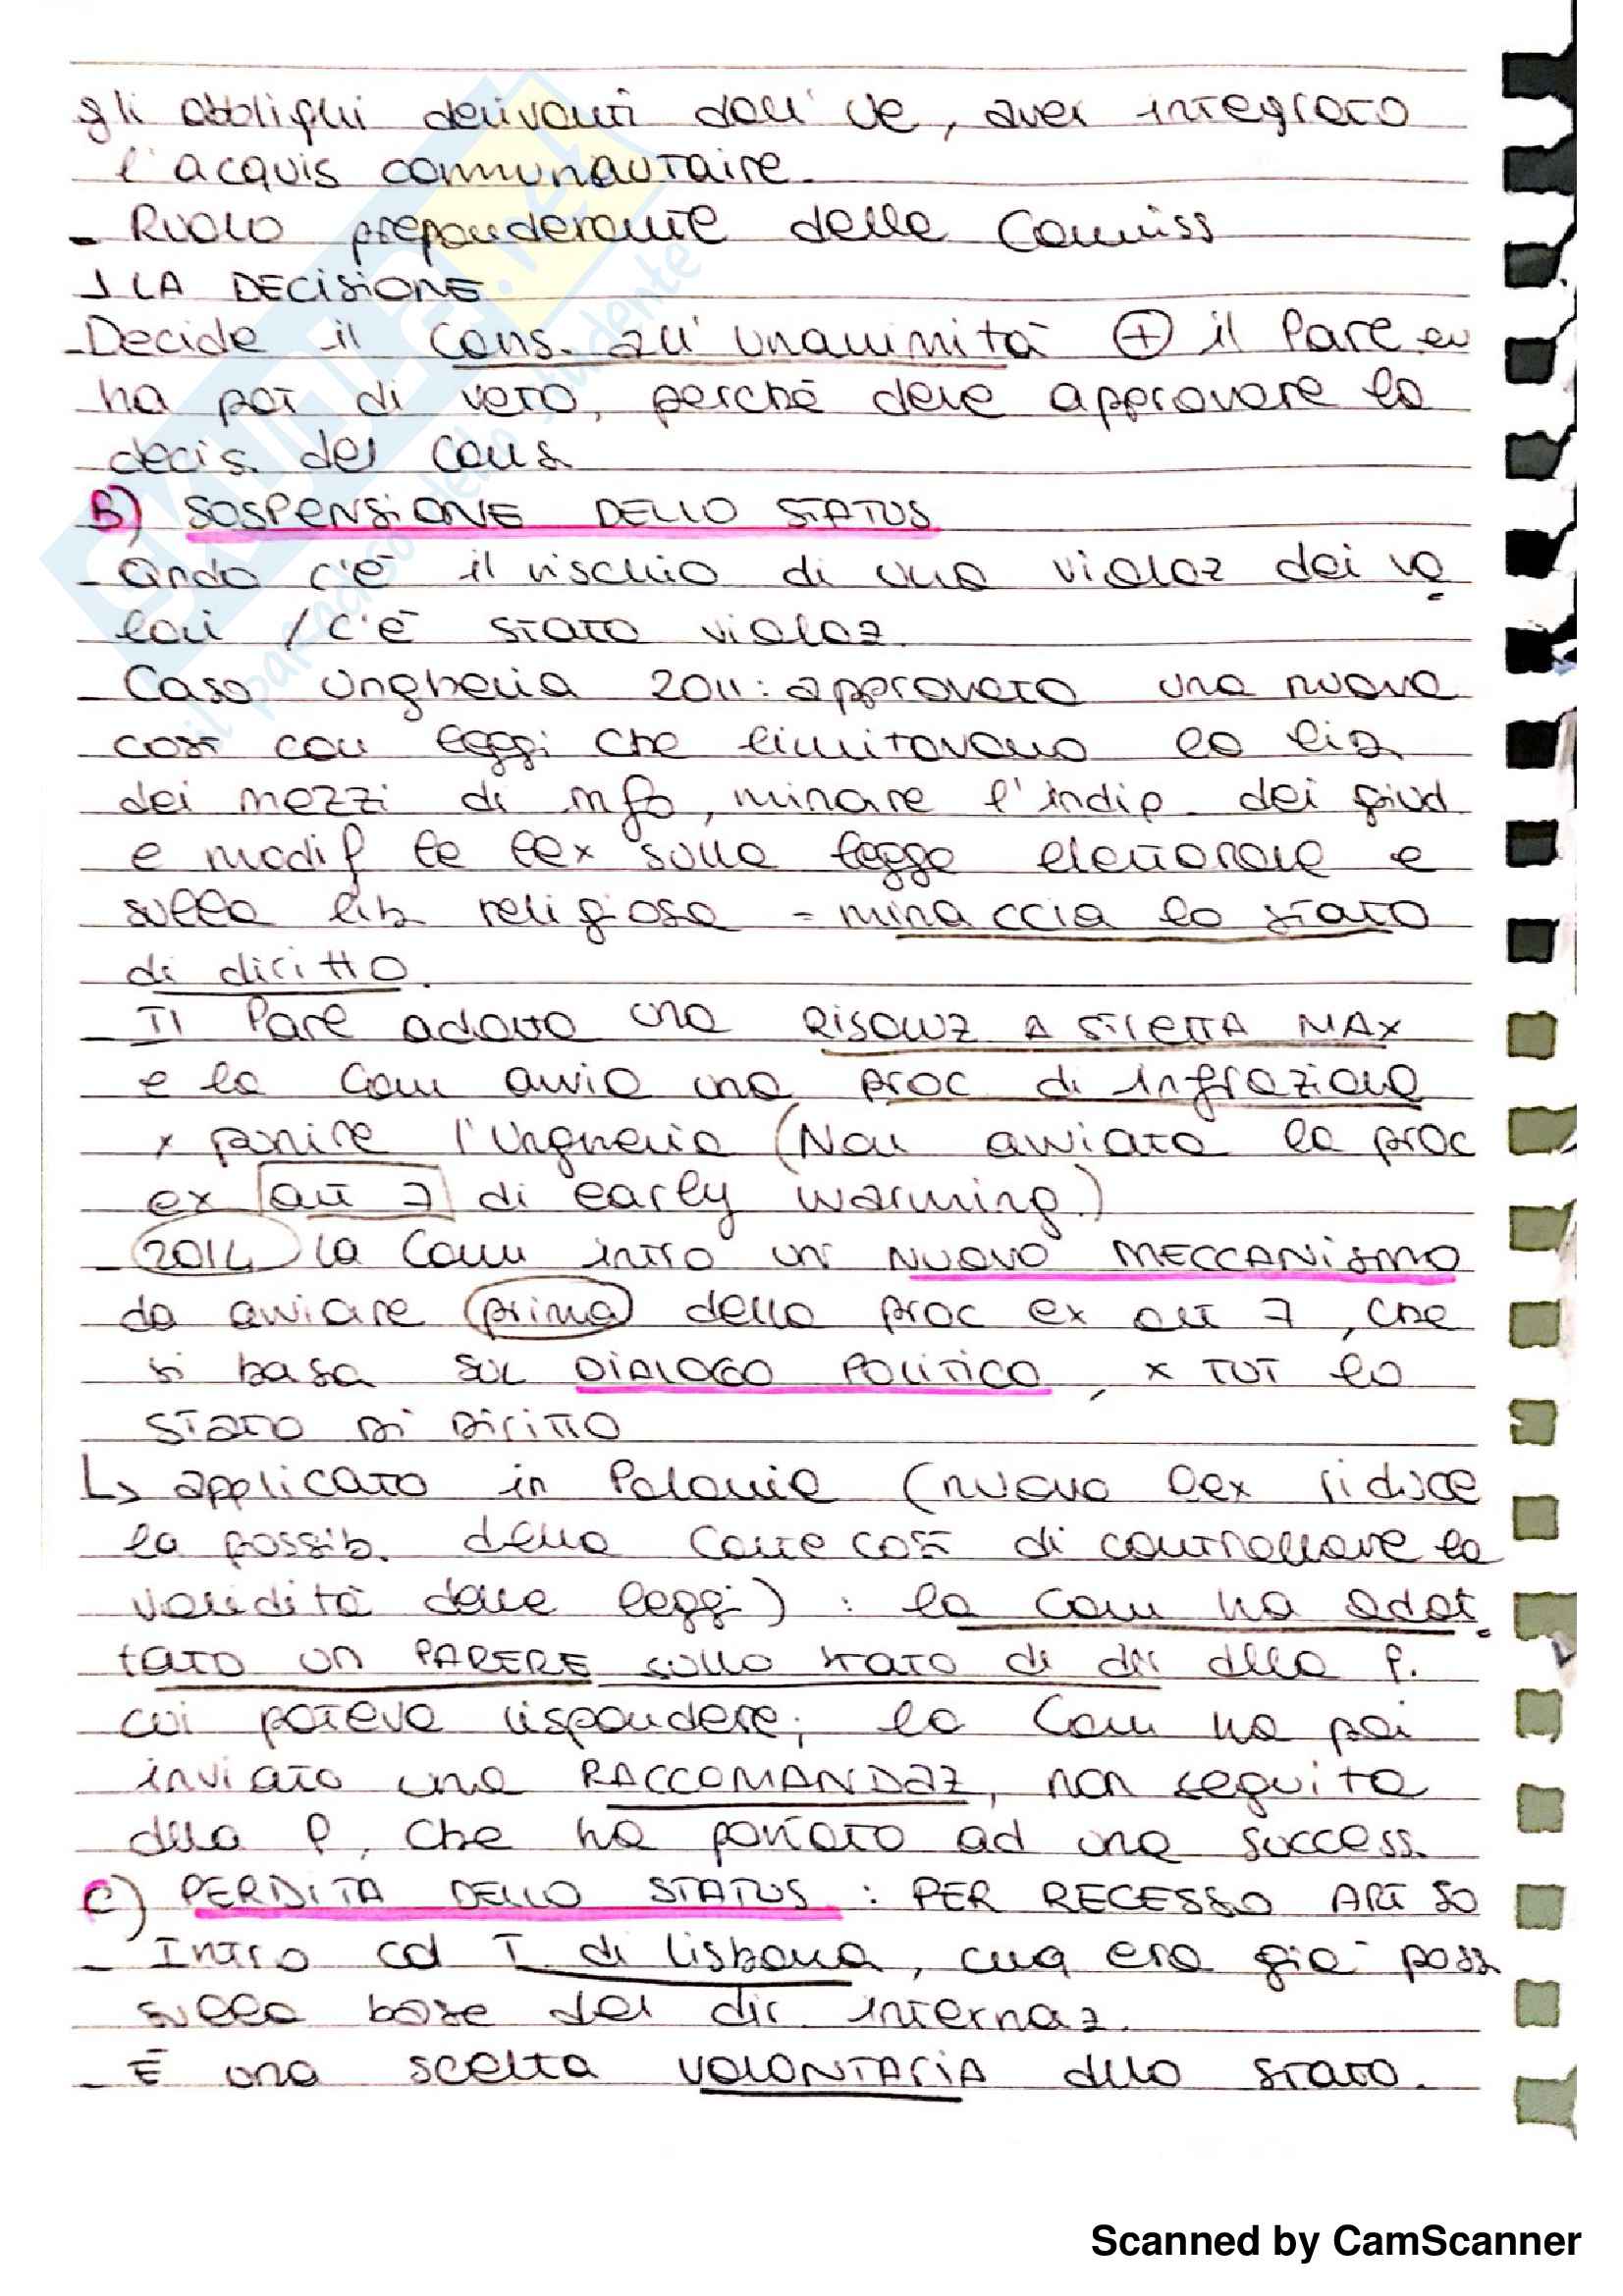 gli obblighi derivanti dall'Ue, aver integrato
l'acquis communautaire.
- Ruolo preponderante della Commiss
LA DECISIONE
- Decide il Cons. all'unanimità ⊕ il Parl eu
ha pot di veto, perché deve approvare la
decis. del Cons
B) SOSPENSIONE DELLO STATUS
- Qndo c'è il rischio di una violaz dei va
lori / c'è stata violaz.
- Caso Ungheria 2011: approvata una nuova
cost con leggi che limitavano la lib
dei mezzi di info, minare l'indip. dei giud
e modif le lex sulla legge elettorale e
sulla lib religiosa = minaccia lo stato
di diritto.
- Il Parl adotta una RISOLUZ A STRETTA MAX
e la Com avvia una proc di infrazione
x punire l'Ungheria (Non avviata la proc
ex art 7 di early warning.)
- 2014 la Com intro un NUOVO MECCANISMO
da avviare prima della proc ex art 7, che
si basa sul DIALOGO POLITICO, x TUT lo
STATO DI DIRITTO
↳ applicato in Polonia (nuova lex riduce
la possib. della Corte cost di controllare la
validità delle leggi) : la Com ha adot
tato un PARERE sullo stato di dir della P.
cui poteva rispondere; la Com ha poi
inviato una RACCOMANDAZ, non seguita
dalla P, che ha portato ad una success.
C) PERDITA DELLO STATUS : PER RECESSO ART 50
- Intro col T. di Lisbona, ma era già poss
sulla base del dir internaz.
- È una scelta VOLONTARIA dello stato.
SKUOLA.net
il paradiso dello studente
Scanned by CamScanner